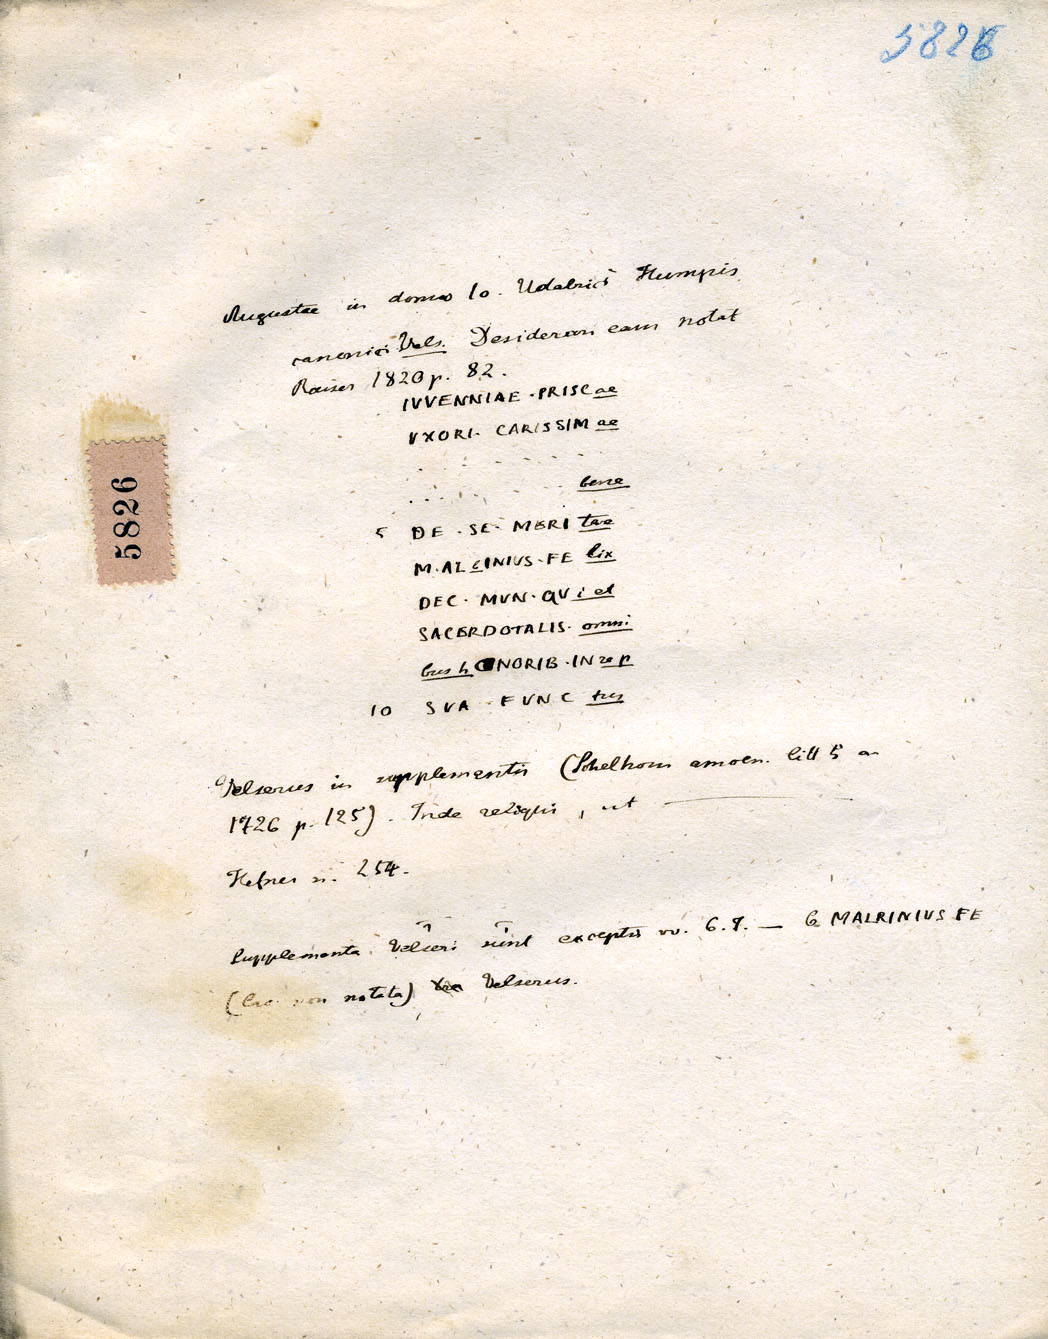 5826
Augustae in domo Io. Udalrici Humpis
canonici Vels. Desiderari eam notat
Raiser 1820 p. 82.
IVVENNIAE · PRISCae
VXORI · CARISSIMae
. . . . . . . . .
. . . . . . bene
5 DE · SE · MERItae
M · ALcINIUS · FElix
DEC · MVN · QVi et
SACERDOTALIS · omni
bus hONORIB · IN rep
10 SVA FVNCtus
5826
Velserus in supplementis (Schelhorn amoen. litt 5 a.
1726 p. 125). Inde reliqui, ut
Hefner n. 254.
Supplementa Velseri sunt exceptis vv. 6. 7. — 6 MALRINIUS FE
(lac. non notata) Velserus.